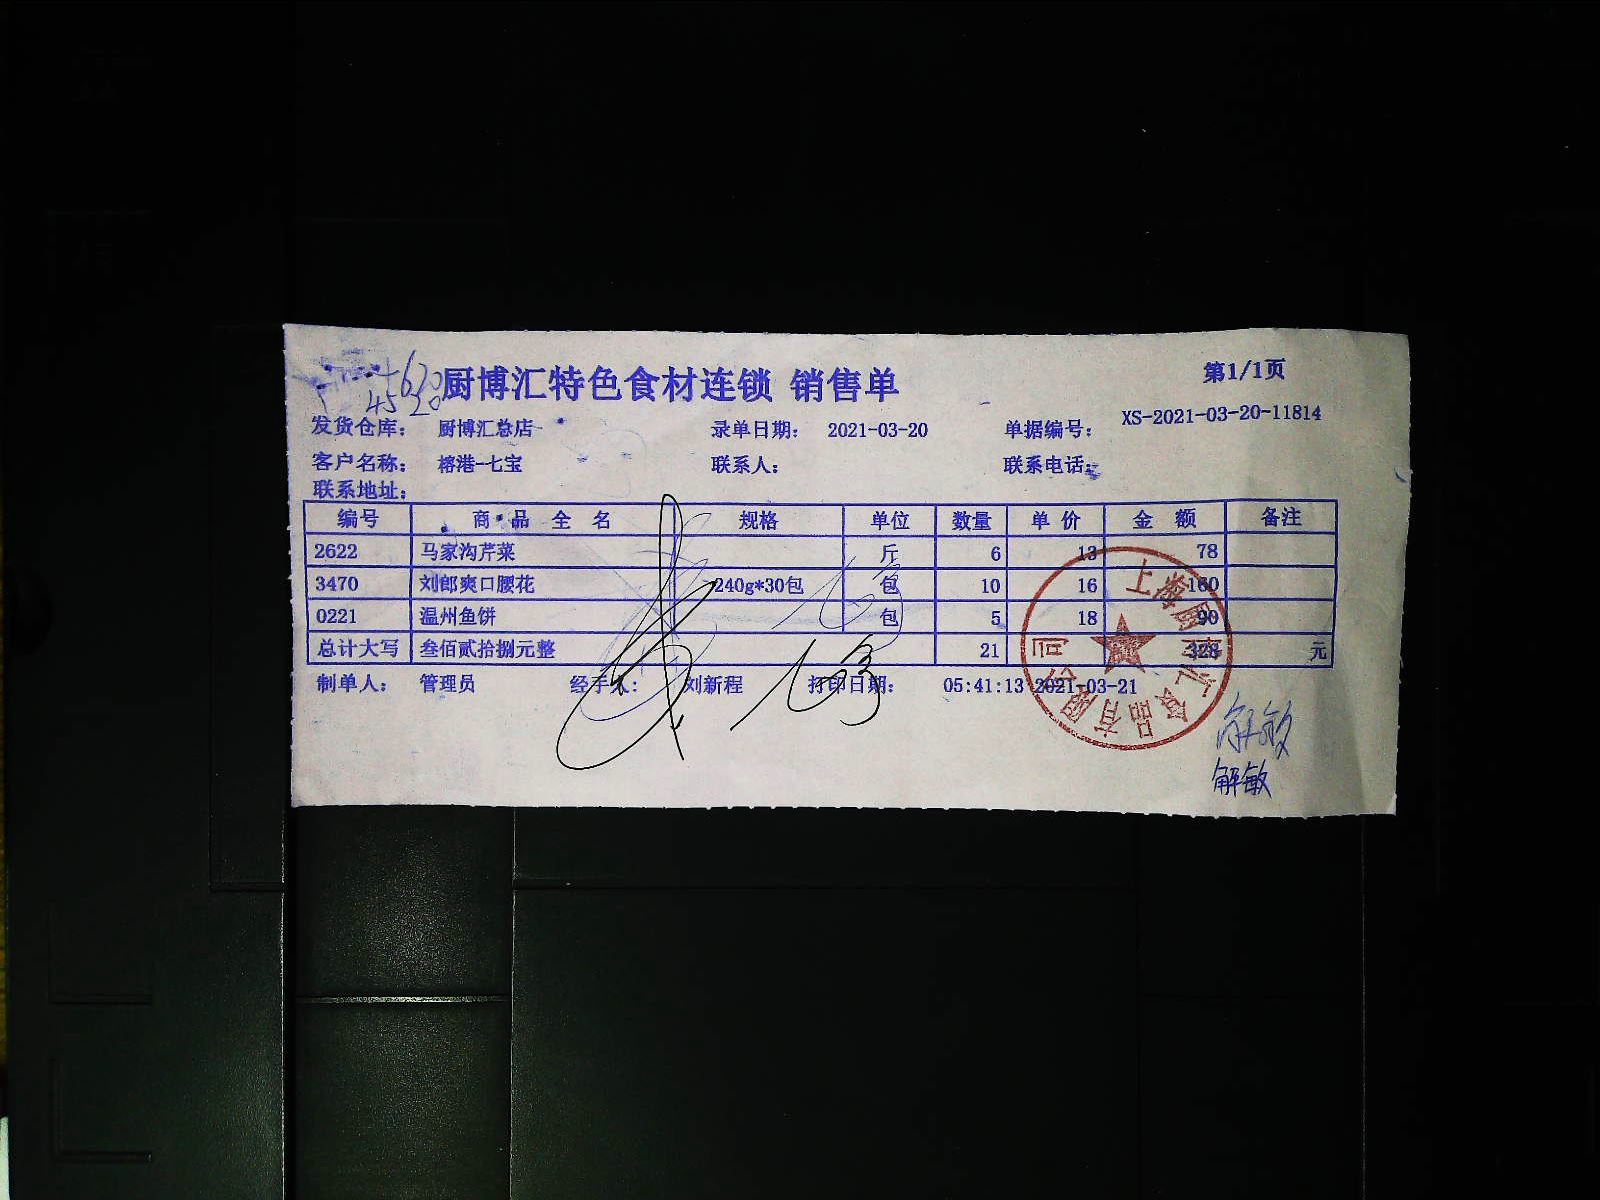 厨博汇特色食材连锁 销售单
第1/1页
发货仓库： 厨博汇总店 录单日期： 2021-03-20 单据编号： XS-2021-03-20-11814
客户名称： 榕港-七宝 联系人： 联系电话：
联系地址：
编号 商 品 全 名 规格 单位 数量 单 价 金 额 备注
2622 马家沟芹菜 斤 6 13 78
3470 刘郎爽口腰花 240g*30包 包 10 16 160
0221 温州鱼饼 包 5 18 90
总计大写 叁佰贰拾捌元整 21 328 元
制单人： 管理员 经手人： 刘新程 打印日期： 05:41:13 2021-03-21
解敏
解敏